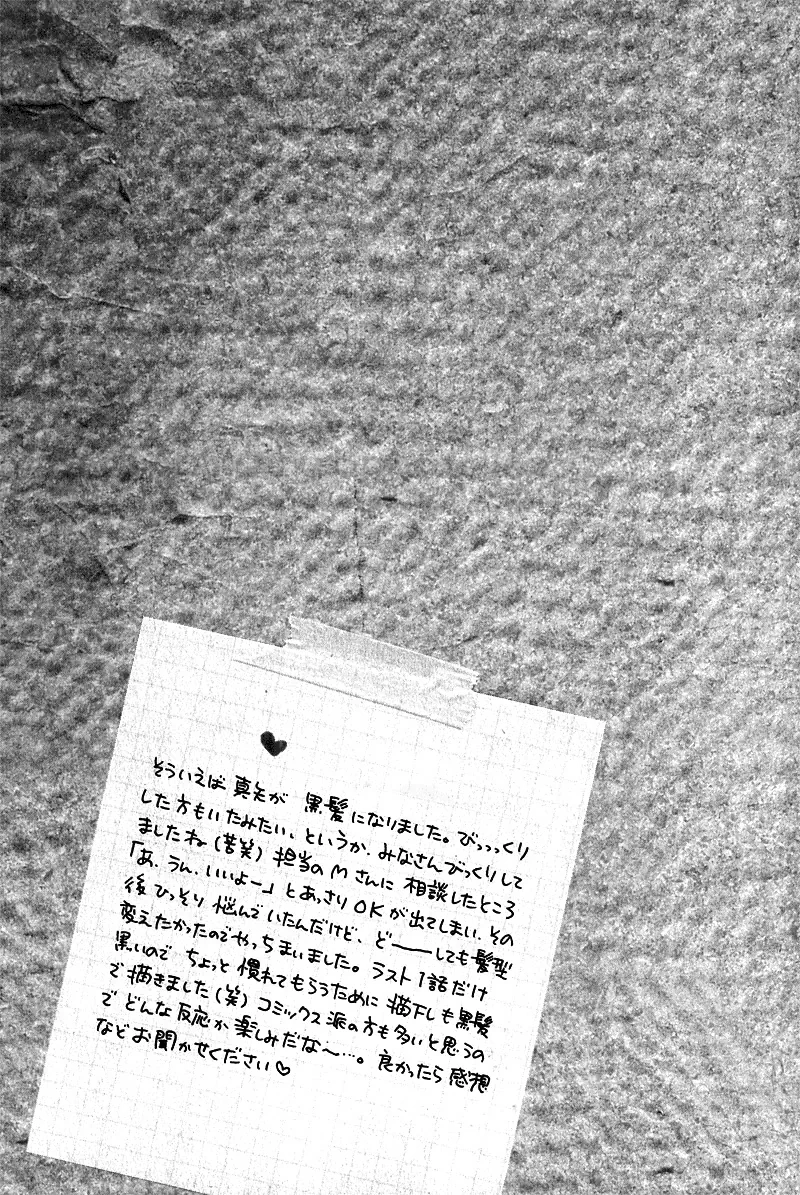 そういえば 真矢が 黒髪になりました。びっっっくり
した方もいたみたい、というか、みなさんびっくりして
ましたね(苦笑) 担当のMさんに 相談したところ
「あ、うん、いいよー」とあっさりOKが出てしまい、その
後ひっそり 悩んでいたんだけど、ど――しても髪型
変えたかったのでやっちまいました。ラスト1話だけ
黒いので ちょっと 慣れてもらうために 描下しも黒髪
で 描きました(笑) コミックス派の方も多いと思うの
で どんな反応か楽しみだな〜…。良かったら感想
などお聞かせください♡